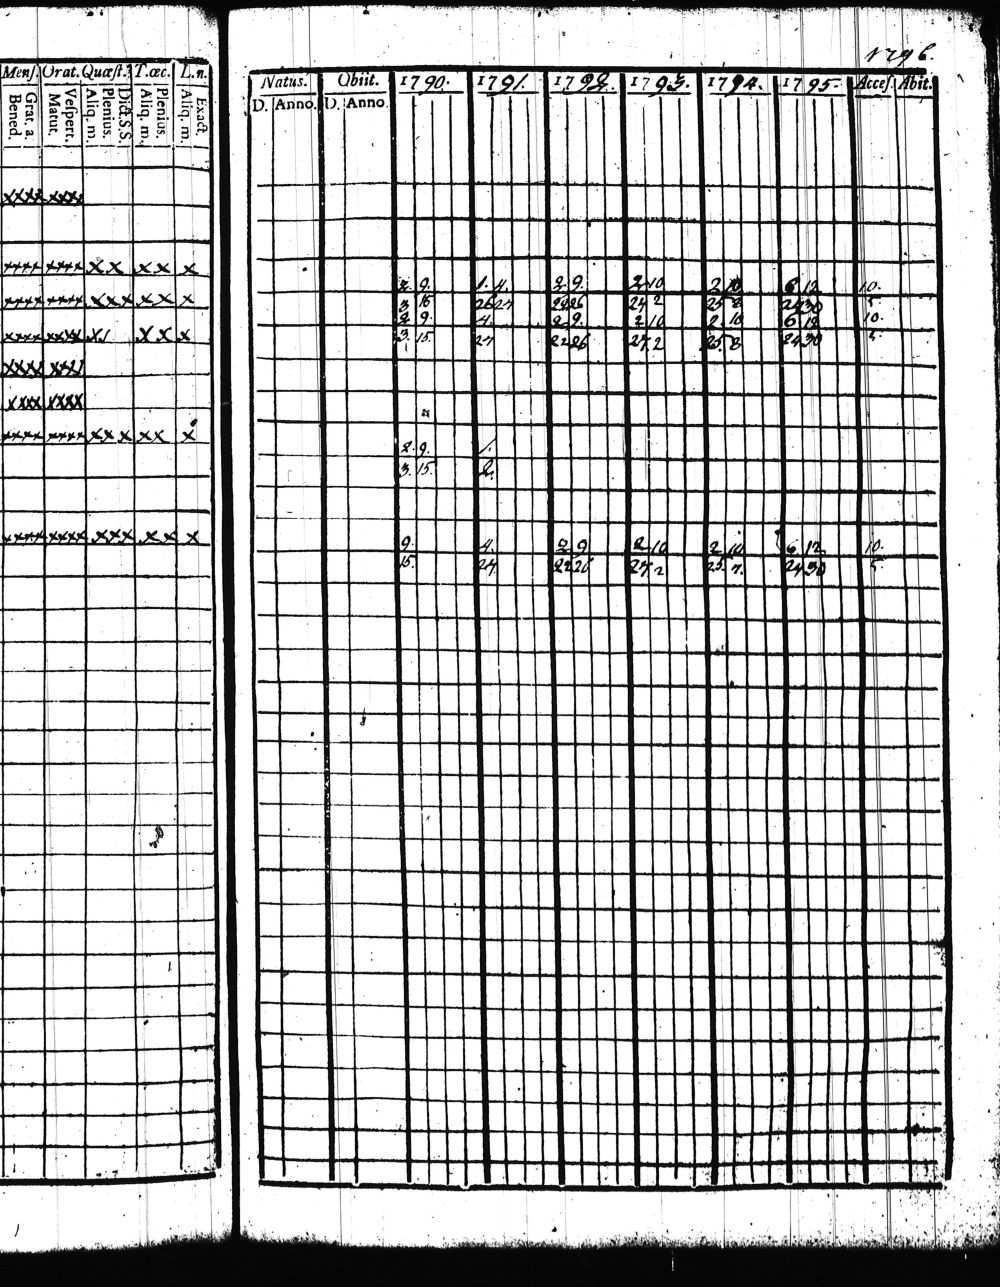 1796
Menſ. Orat. Quæſt. T. œc. L. n.
Grat. a. Bened. Veſpert. Matut. Dict. S. S. Plenius. Aliq. m. Plenius. Aliq. m. Exact. Aliq. m.
Natus. Obiit. 1790. 1791. 1792. 1793. 1794. 1795. Acceſ. Abit.
D. Anno. D. Anno.
xxxx xxxx
xxxx xxxx xx xx x
2. 9. 1. 4. 2 9. 2 10 2 10 6 12 10.
xxxx xxxx xxx xx x
3 15 26 27 22 26 27 2 25 8 24 30 5.
2 9. 4. 2 9. 2 10 2. 10 6 12 10.
xxxx xxxx x/ xx x
3. 15. 27 22 26 27. 2 25. 8 24 30 5.
xxxx xxxx
xxxx xxxx
xxxx xxxx xxx xx x
2. 9. 1.
3. 15. 2.
xxxx xxxx xxx xx x
9. 4. 2 9 2 10 2 10 6 12 10.
15. 27 22 26 27 2 25. 7. 24 30 5.